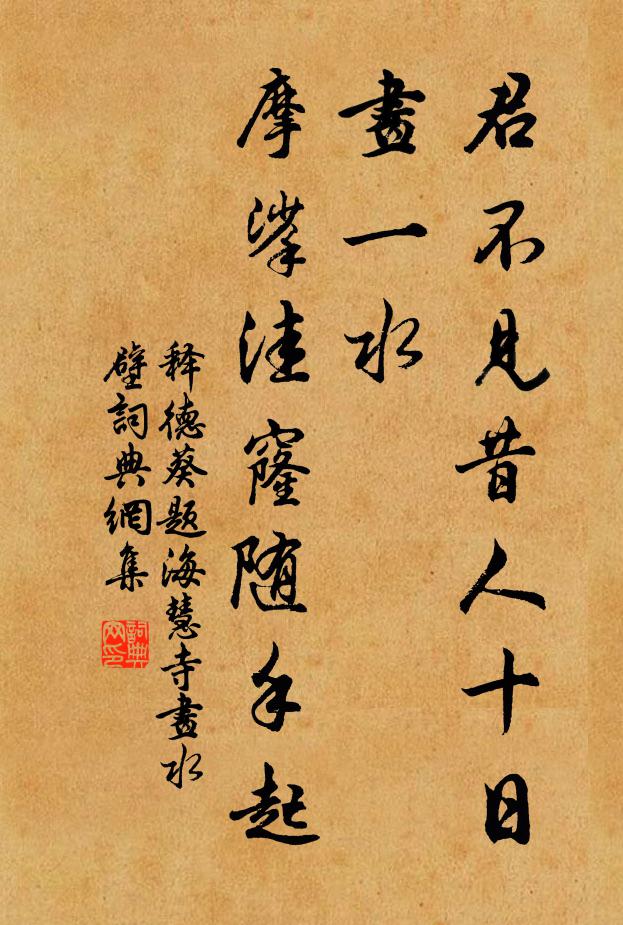 君不見昔人十日
畫一水
摩挲洼窿随手起
释德葵题海慧寺畫水
壁詞典網集
詞典
网印